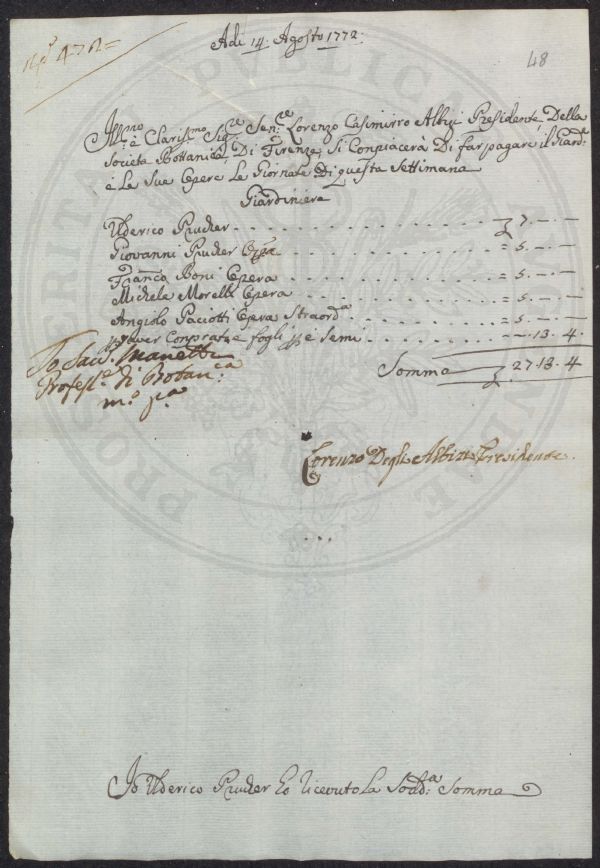 Adi 14. Agosto 1772.
48
Ill:mo e Claris:mo Sig:re Sen:re Lorenzo Casimirro Albizi Presidente Della
Societa Bottanica, Di Firenze, Si Conpiacerà Di far pagare il Giard:
è Le Sue Opere Le Giornate Di questa Settimana
Giardiniere
Ulderico Prucker . . . . . . . . £ 7. — . —
Giovanni Prucker Opera . . . . . . = 5. — . —
Franco Boni Opera . . . . . . . = 5. — . —
Michele Morelli Opera . . . . . . = 5. — . —
Angiolo Paciotti Opera Straord:a . . . = 5. — . —
p aver Conprato e fogli p i Semi . . . . — . 13. 4.
Somma £ 27. 13. 4
Io Sav: Manetti
Profess:e di Botan:ca
m:o p:a
Lorenzo Degli Albizi Presidente.
PUBLICAE
Io Ulderico Prucker Ho Ricevuto La Sod:a Somma